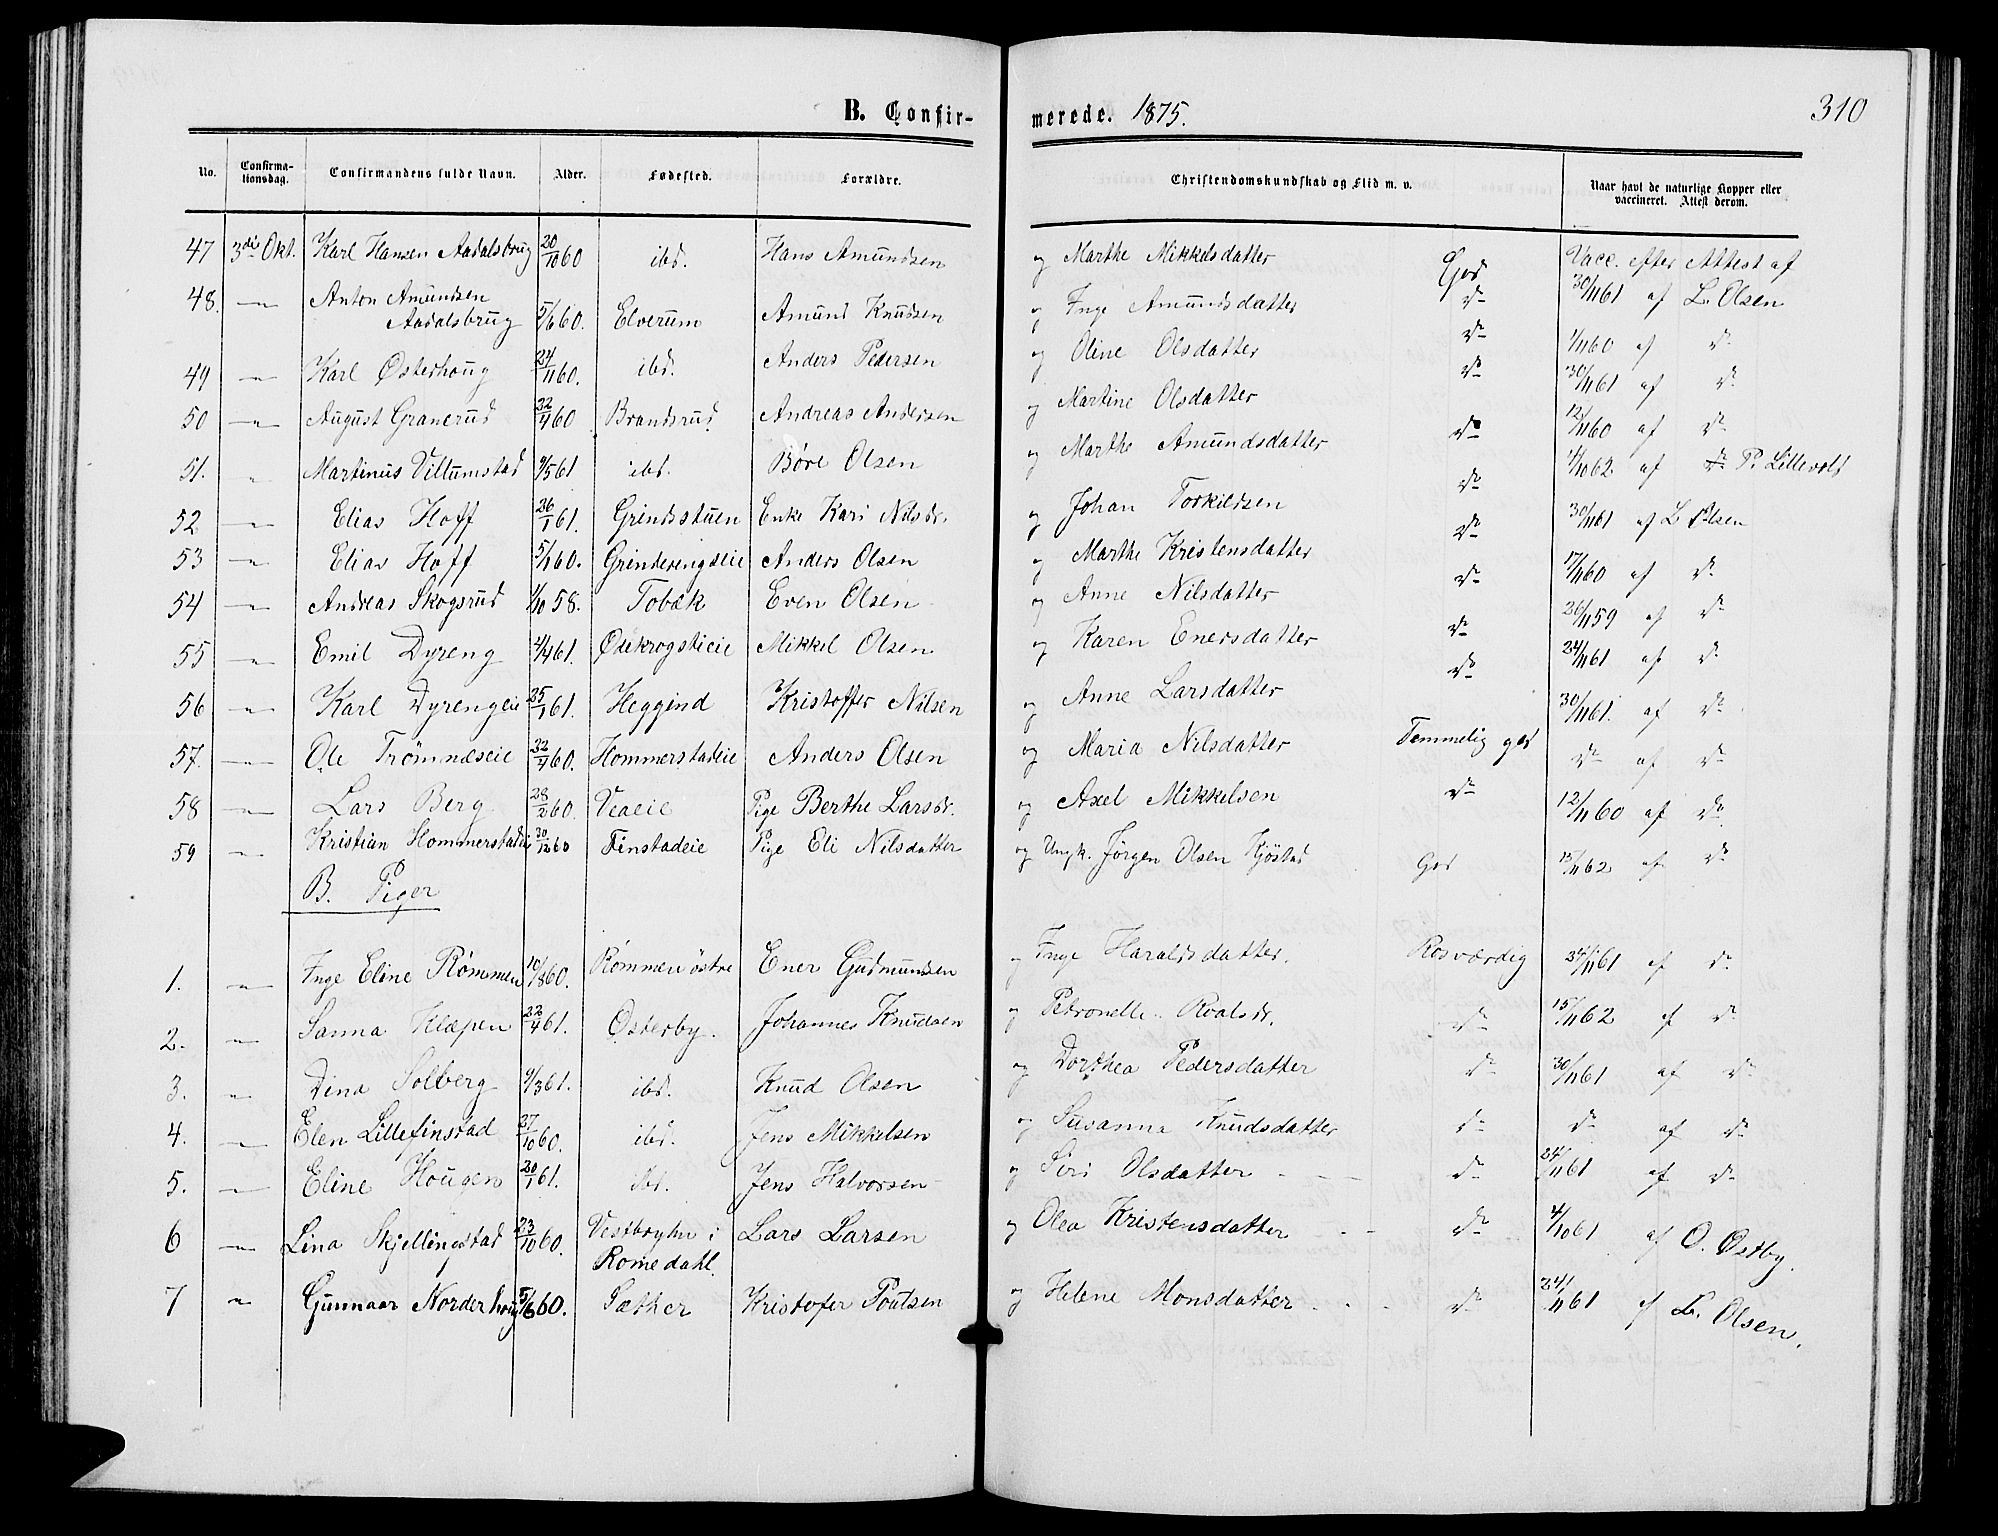 B. Confirmerede. 1875.
310
No. Confirmationsdag. Confirmandens fulde Navn. Alder. Fødested. Forældre. Christendomskundskab og Flid m. v. Naar havt de naturlige Kopper eller vaccineret. Attest derom.
47 3die Okt. Karl Hansen Aadalsbrug 20/10 60 ibd. Hans Amundsen og Marthe Mikkelsdatter God Vacc. efter Attest af 30/11 61 af L. Olsen
48. —"— Anton Amundsen Aadalsbrug 5/6 60. Elverum Amund Knudsen og Inge Amundsdatter do 1/11 60 af do
49 —"— Karl Østerhoug 24/11 60. ibd. Anders Pedersen og Oline Olsdatter do 30/11 61 af do
50 —"— August Granerud 22/4 60 Brandsrud Andreas Andersen og Martine Olsdatter do 12/11 60 af do
51. " Martinus Villumstad 9/5 61 ibd. Børe Olsen og Marthe Amundsdatter do 4/10 62. af P. Lillevold
52 —"— Elias Hoff 26/1 61. Grindsstuen Enke Kari Nilsdr. og Johan Torkildsen do 30/11 61 af L. Olsen
53 —"— Elias Hoff 5/1 60. Grinderengseie Anders Olsen og Marthe Kristensdatter do 17/11 60 af do
54 —"— Andreas Skogsrud 1/10 58. Tobæk Even Olsen og Anne Nilsdatter do 26/11 59 af do
55 —"— Emil Dyreng 4/4 61. Ødekrogstieie Mikkel Olsen og Karen Enersdatter do 24/11 61 af do
56 —"— Karl Dyrengeie 25/1 61. Heggind Kristoffer Nilsen og Anne Larsdatter do 30/11 61. af do
57. —"— Ole Trømnæseie 22/4 60. Hommerstadeie Anders Olsen og Maria Nilsdatter Temmelig god do af do
58 —"— Lars Berg 28/2 60. Veaeie Pige Berthe Larsdr. og Axel Mikkelsen do 12/11 60 af do
59 —"— Kristian Hommerstadeie 30/12 60 Finstadeie Pige Eli Nilsdatter og Ungk. Jørgen Olsen Kjøstad God 15/11 62 af do
B. Piger
1. —"— Inge Eline Rømmen 10/8 60. Rømmen østre Ener Gudmundsen og Inge Haraldsdatter. Rosværdig 24/11 61 af do
2. —"— Sanna Klæpen 22/4 61. Østerby. Johannes Knudsen og Petronelle Roalsdr. do 15/11 62 af do
3. —"— Dina Solberg 9/3 61. ibd. Knud Olsen og Dorthea Pedersdatter do 30/11 61 af do
4. —"— Elen Lillefinstad 27/10 60. ibd. Jens Mikkelsen og Susanna Knudsdatter do do af do
5. —"— Eline Hougen 20/1 61. ibd. Jens Halvorsen og Siri Olsdatter do 24/11 61 af do
6 —"— Lina Skjellingstad 23/10 60. Vestbyghn i Romedahl. Lars Larsen og Olea Kristensdatter do 4/10 61 af O. Østby.
7 —"— Gunnaar Norderhoug 5/6 60. Sæther Kristofer Poulsen og Helene Monsdatter do 24/11 61 af L. Olsen.